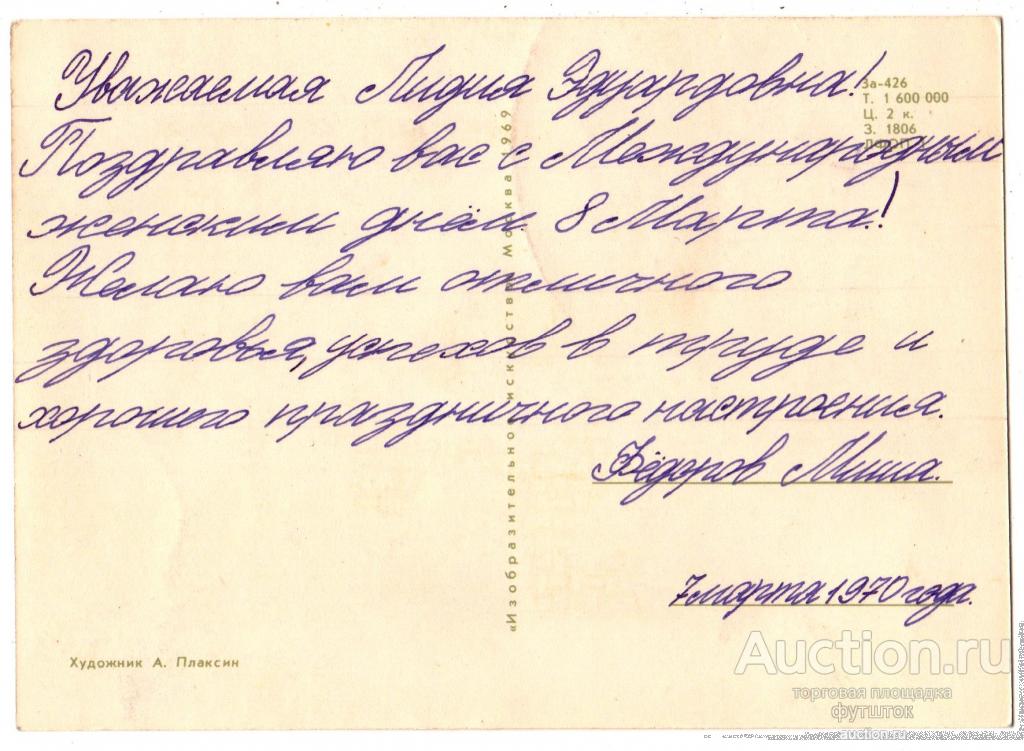 Уважаемая Лидия Эдуардовна!
Поздравляю вас с Международным
женским днём 8 Марта!
Желаю вам отличного
здоровья, успехов в труде и
хорошего праздничного настроения.
Фёдоров Миша.
7 марта 1970 года.
За-426
Т. 1 600 000
Ц. 2 к.
З. 1806
«Изобразительное искусство» Москва 1969
Художник А. Плаксин
Auction.ru
торговая площадка
футшток
auction.ru